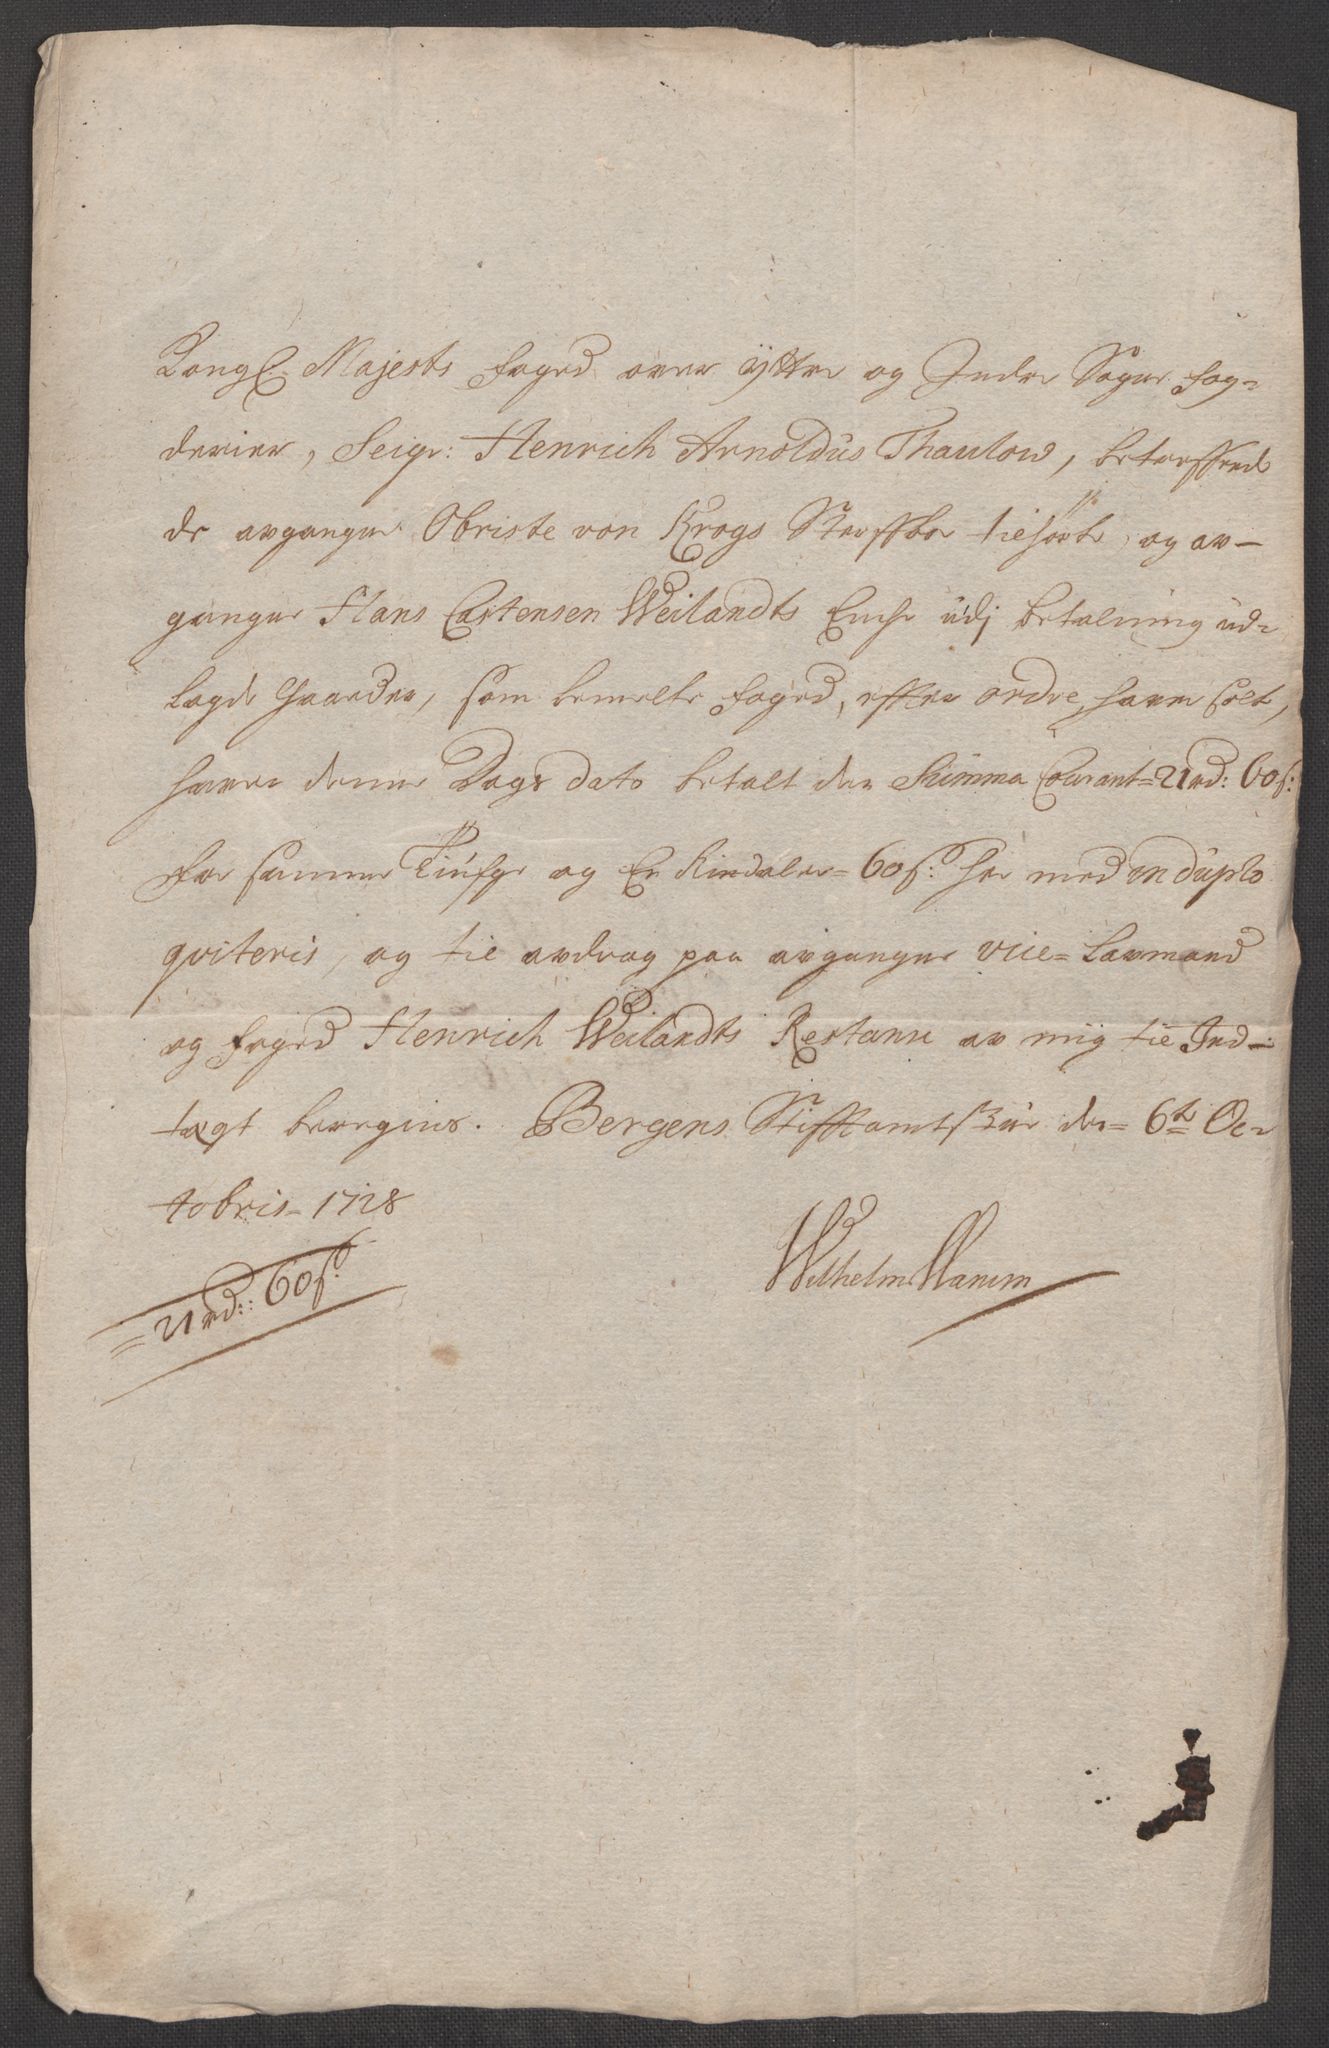 Kongl. Majests foged over ÿttre og Indre Sogns fog-
derier, Seigr: Henrich Arnoldus Thaulow, betreffende
de avgangne Obriste von Krogs Sterffboe tilhørte, og av-
gangne Hans Carstensen Weilandts Enche udj betalning ud-
lagde Gaarder, som bemelte foged, efter ordre, haver solt,
haver denne Dags dato betalt den Summa Courant = 21 rd: 60 s:
for samme Tiufge og En Rixdaler = 60 s: her med in duplo
qviteris, og til avdrag paa avgangne vice-Lavmand
og foged Henrich Weilandts Restance av mig til Ind-
tægt beregnis. Bergens StifftamtStue den = 6te Oc-
tobris 1728
= 21 rd:: 60 s:
Wilhelm Hanson